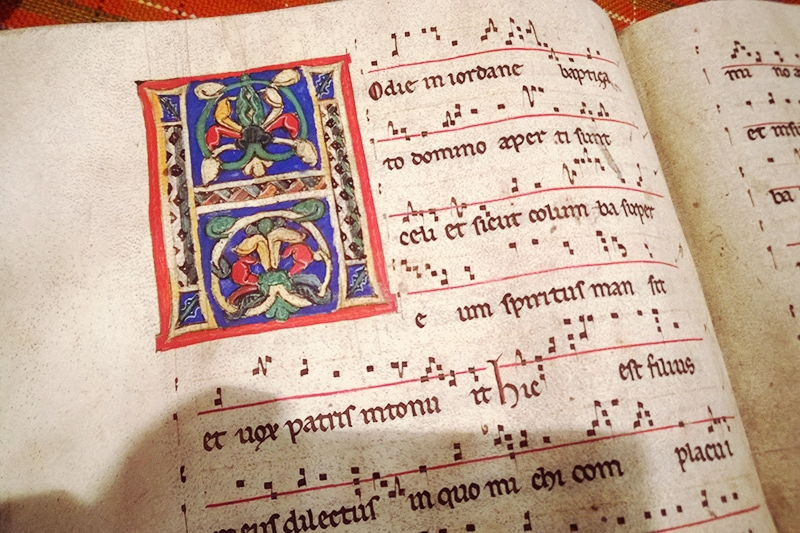 Hodie in iordane baptiza
to domino aper ti sunt
celi et sicut colum ba super
e um spiritus man sit
et uox patris intonu it hic est filius
meus dilectus in quo mi chi com placui
mi no
et
ba